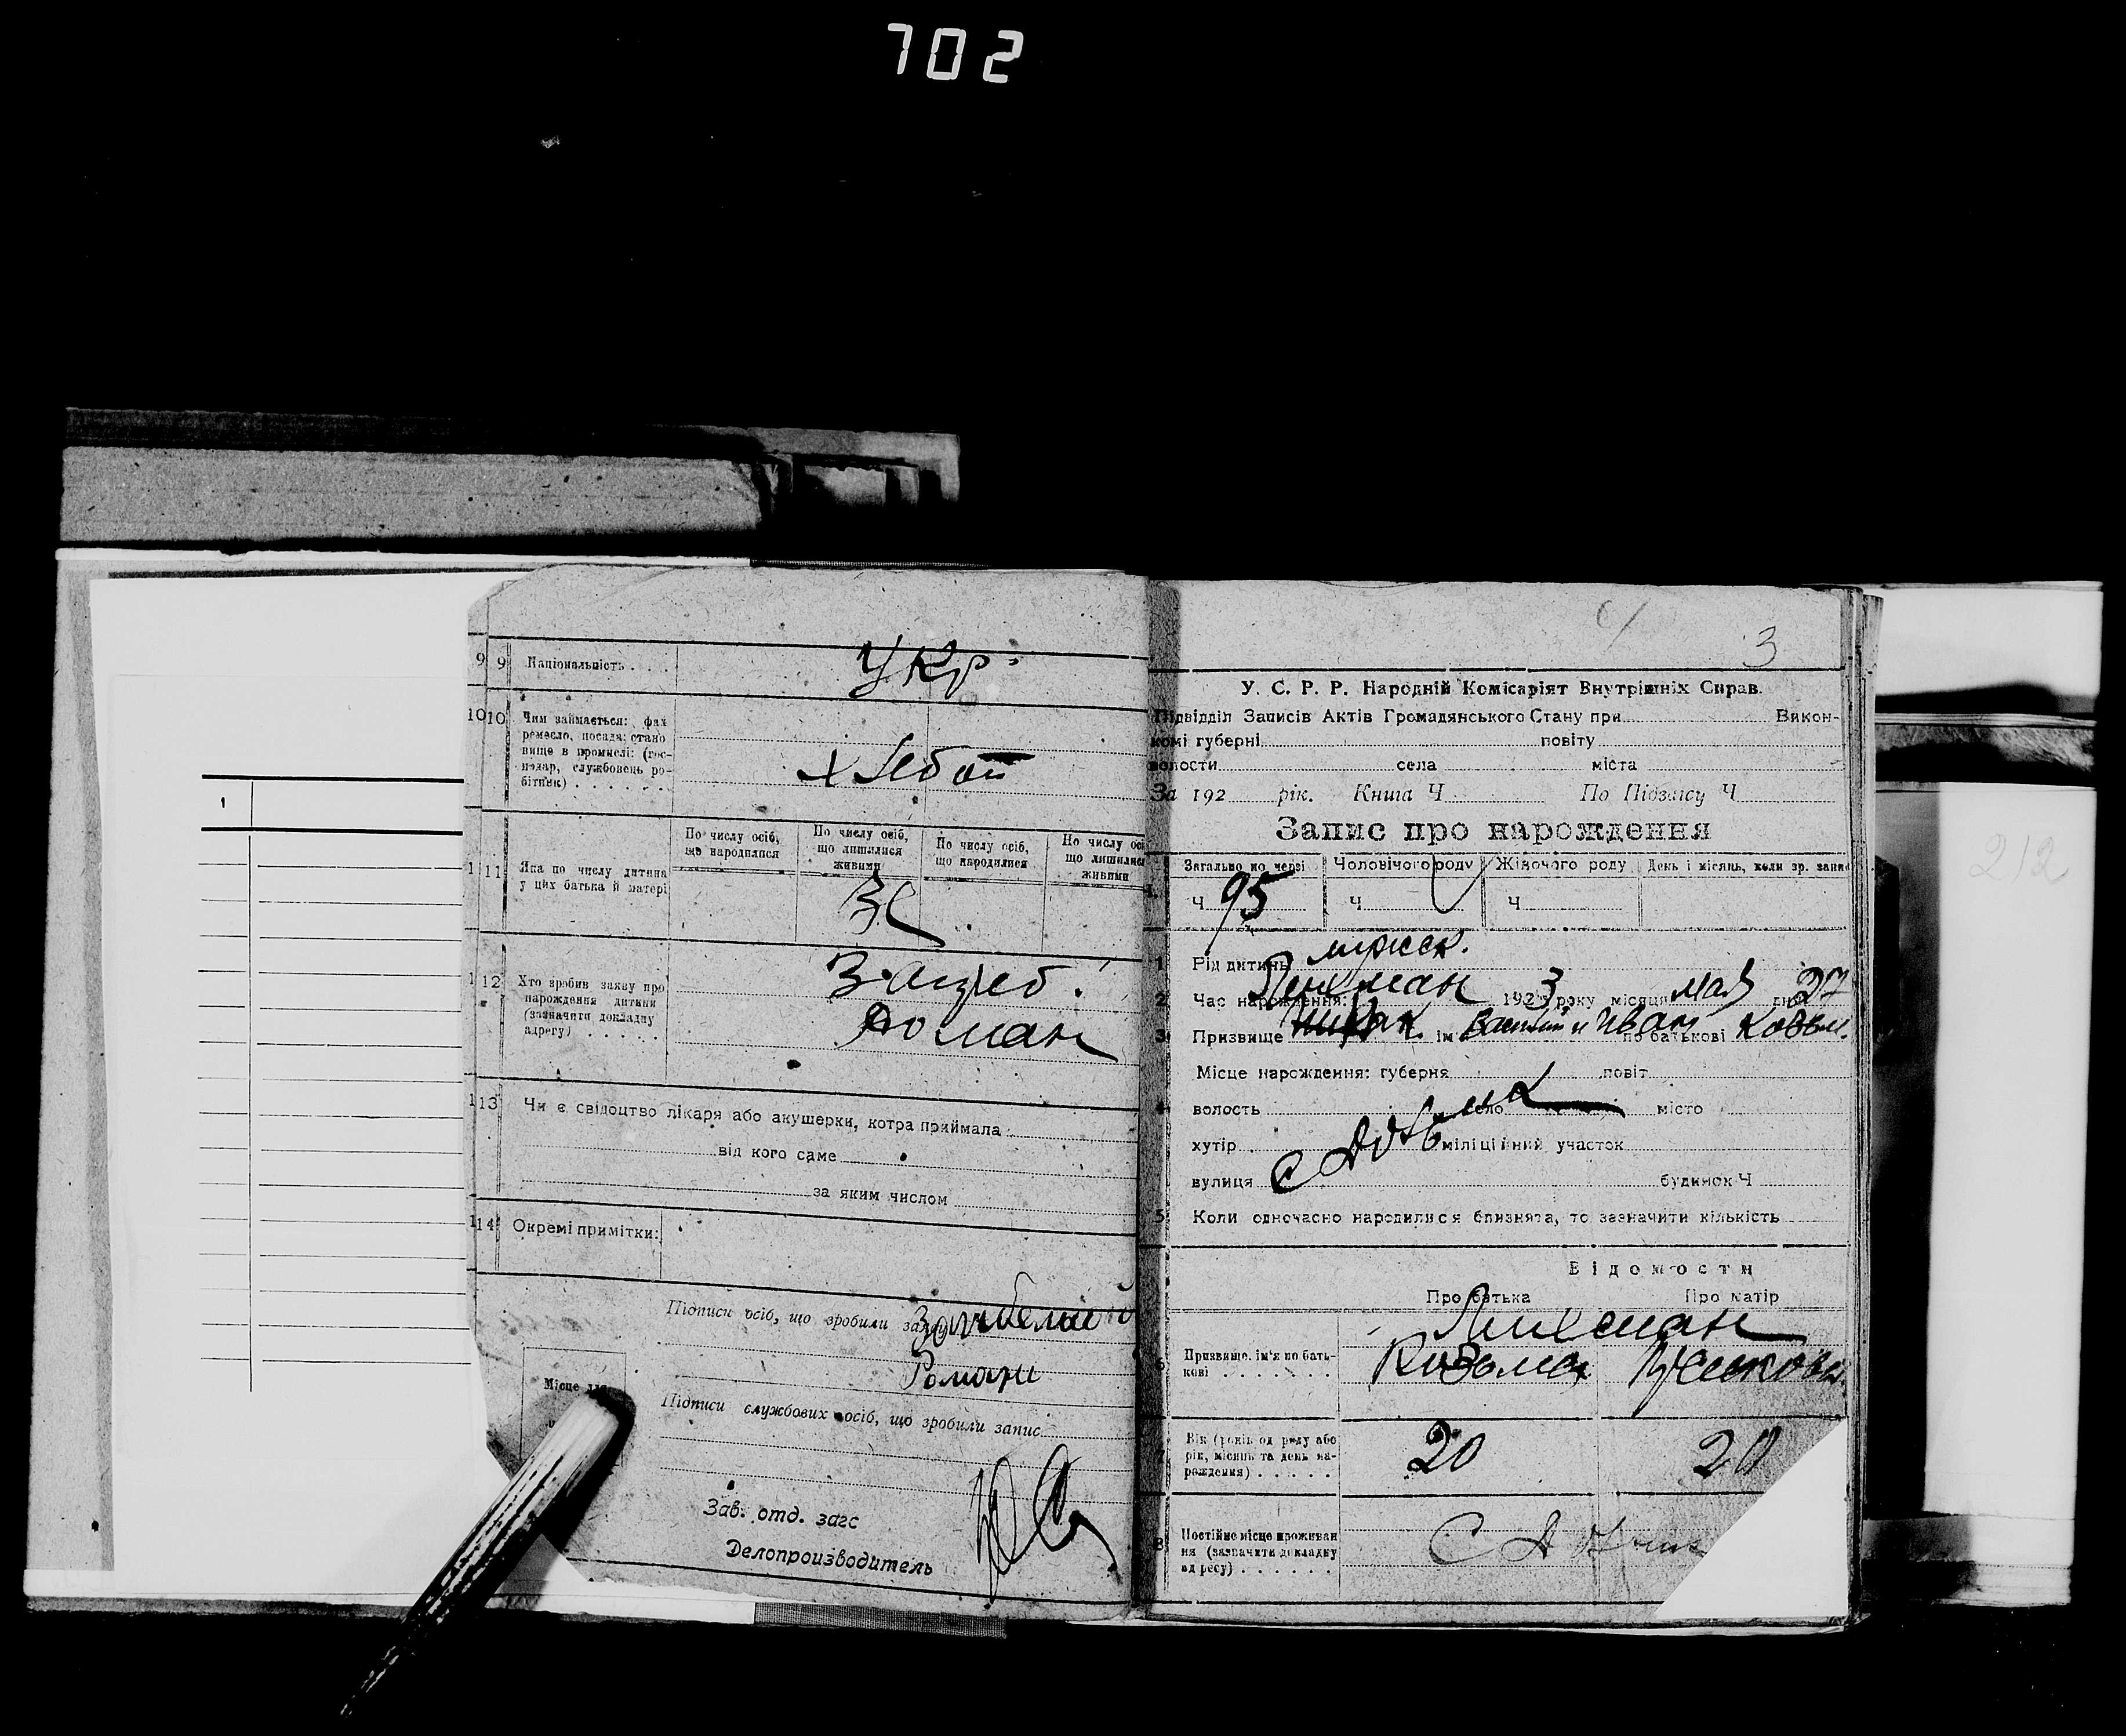 702
9 9 Національність . . . . Укр
10 10 Чим займається: фах
ремесло, посада: стано
вище в промислі: (гос-
подар, службовець ро-
бітник) . . . . . . .
хлебоп
1
По числу осіб, що народилися
По числу осіб, що лишилися живими
По числу осіб, що народилися
По числу осіб що лишилися живими
11 Яка по числу дитина
у цих батька й матері
12 Хто зробив заяву про
нарождення дитини
(зазначити докладну
адресу) . . . . .
Роман
13 Чи є свідоцтво лікаря або акушерки, котра приймала
від кого саме
за яким числом
14 Окремі примітки:
Підписи осіб, що зробили заяву
Романи
Місце для
Підписи службових осіб, що зробили запис
Зав. отд. загс
Делопроизводитель
3
У. С. Р. Р. Народній Комісаріят Внутрішніх Справ.
Підвідділ Записів Актів Громадянського Стану при Викон-
комі губерні повіту
волости села міста
За 192 рік. Книга Ч По Підзапсу Ч
Запис про нарождення
Загально по черзі Чоловічого роду Жіночого роду День і місяць, коли зр. запис
Ч 95 Ч Ч
1 Рід дитини мужск.
2 Час нарождення: 1923 року місяця мая дня 27
3 Призвище ім Василий и Иван по батькові Козьм.
Місце нарождення: губерня повіт
4 волость село місто
хутір міліційний участок
вулиця будинок Ч
5 Коли одночасно народилися близнята, то зазначити кількість
Відомости
Про батька Про матір
6 Призвище, ім'я по бать-
кові . . . . . . .
Козьма
7 Вік (років од роду або
рік, місяць та день на-
рождення) . . . . .
20 20
8 Постійне місце проживан
ня (зазначити докладну
адресу) . . . . . .
212